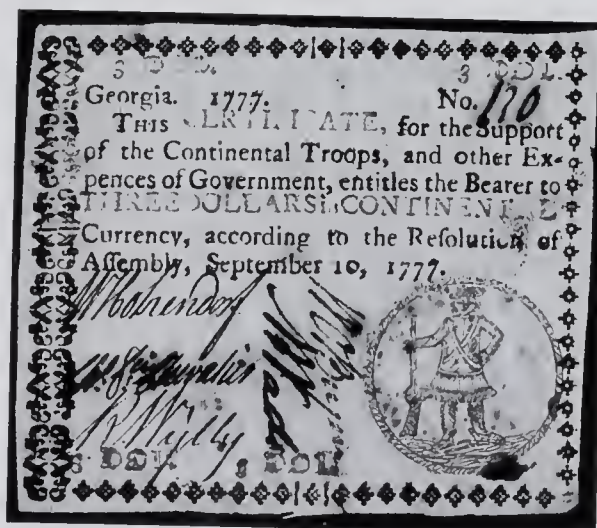 3 DOL. 3 DOL.
Georgia. 1777. No. 170
THIS CERTIFICATE, for the Support
of the Continental Troops, and other Ex-
pences of Government, entitles the Bearer to
THREE DOLLARS in CONTINENTAL
Currency, according to the Resolution of
Assembly, September 10, 1777.
R Wylly
3 DOL. 3 DOL.